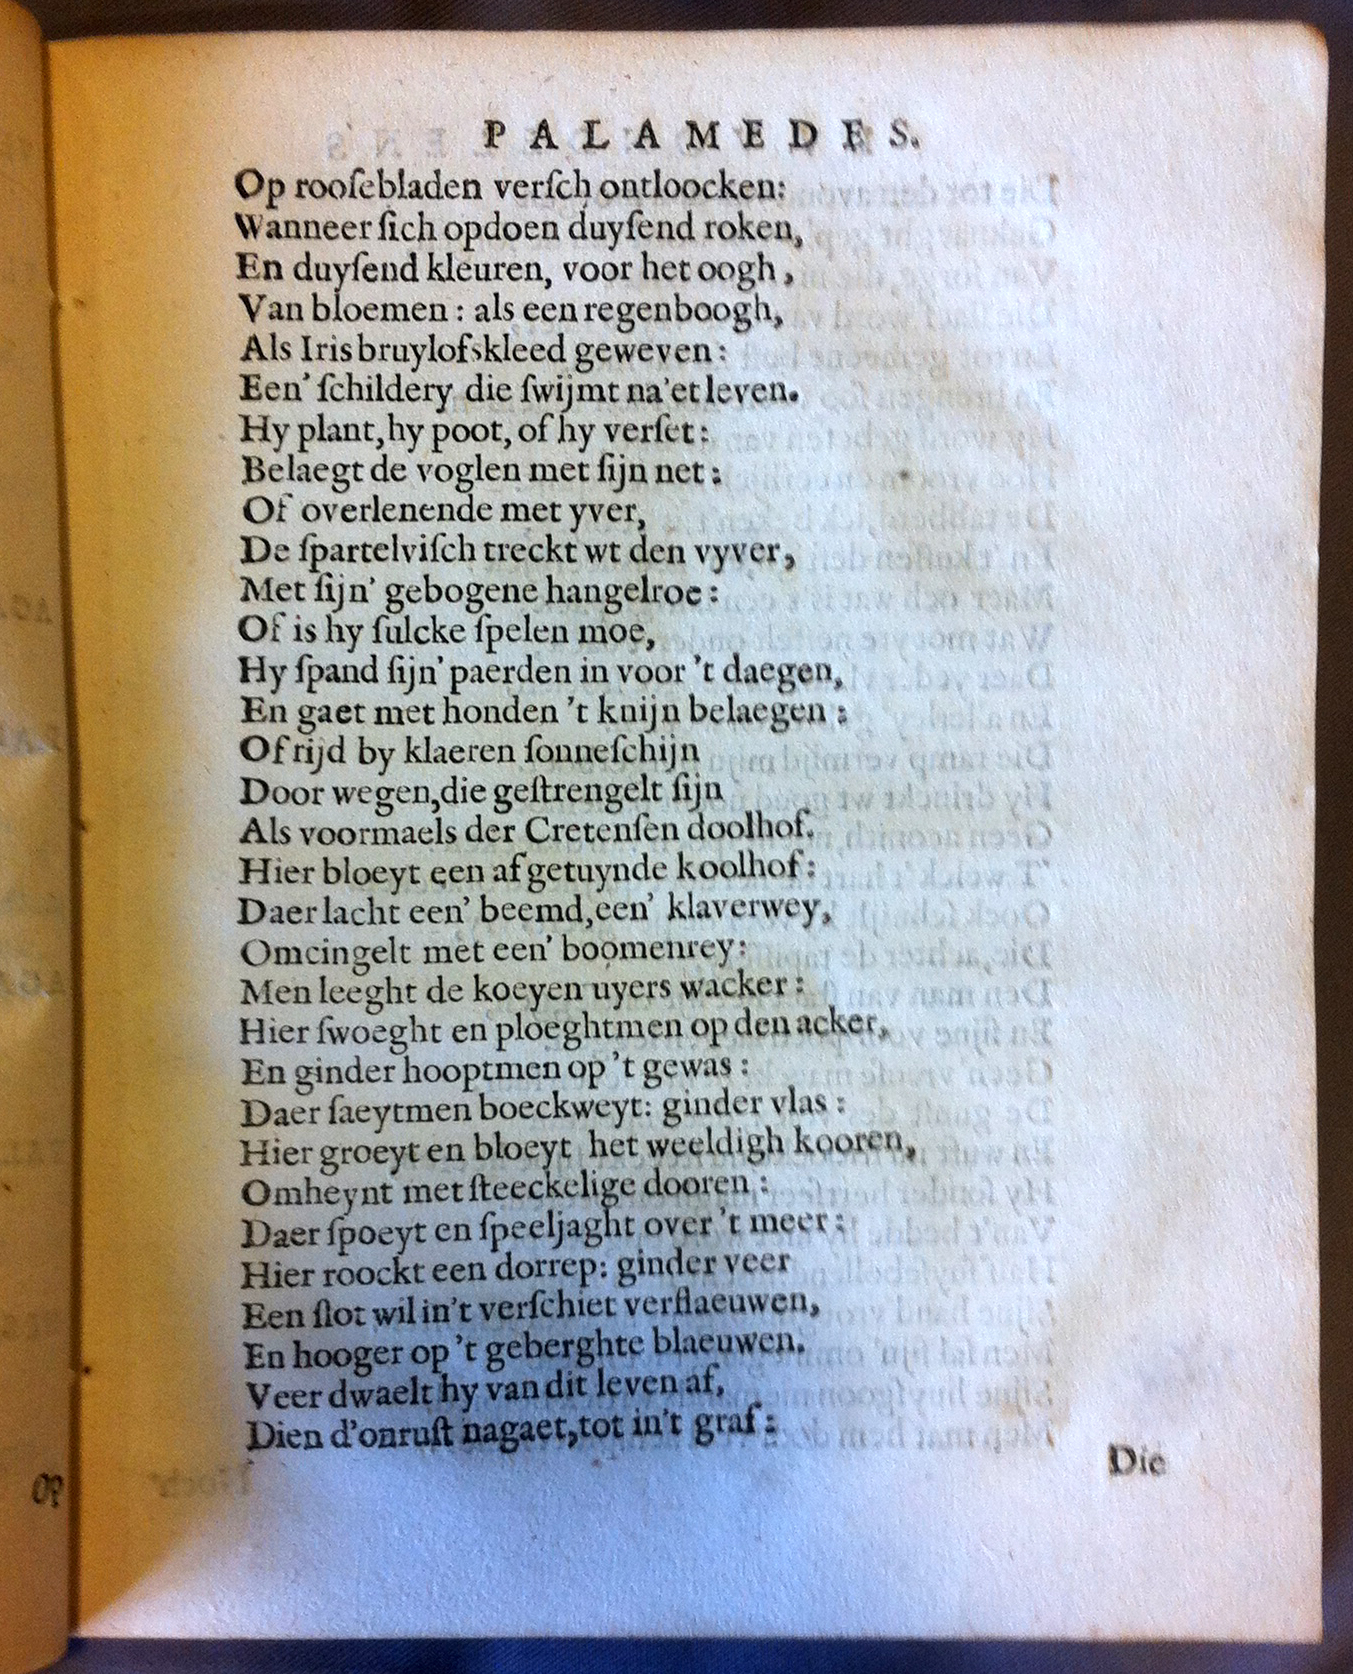 PALAMEDES.
Op rooſebladen verſch ontloocken:
Wanneer ſich opdoen duyſend roken,
En duyſend kleuren, voor het oogh,
Van bloemen: als een regenboogh,
Als Iris bruylofskleed geweven:
Een' ſchildery die ſwijmt na'et leven.
Hy plant, hy poot, of hy verſet:
Belaegt de voglen met ſijn net:
Of overlenende met yver,
De ſpartelviſch treckt wt den vyver,
Met ſijn' gebogene hangelroe:
Of is hy ſulcke ſpelen moe,
Hy ſpand ſijn' paerden in voor 't daegen,
En gaet met honden 't knijn belaegen:
Of rijd by klaeren ſonneſchijn
Door wegen, die geſtrengelt ſijn
Als voormaels der Cretenſen doolhof.
Hier bloeyt een afgetuynde koolhof:
Daer lacht een' beemd, een' klaverwey,
Omcingelt met een' boomenrey:
Men leeght de koeyen uyers wacker:
Hier ſwoeght en ploeghtmen op den acker,
En ginder hooptmen op 't gewas:
Daer ſaeytmen boeckweyt: ginder vlas:
Hier groeyt en bloeyt het weeldigh kooren,
Omheynt met ſteeckelige dooren:
Daer ſpoeyt en ſpeeljaght over 't meer:
Hier roockt een dorrep: ginder veer
Een ſlot wil in't verſchiet verflaeuwen,
En hooger op 't geberghte blaeuwen.
Veer dwaelt hy van dit leven af,
Dien d'onruſt nagaet, tot in't graf:
Die